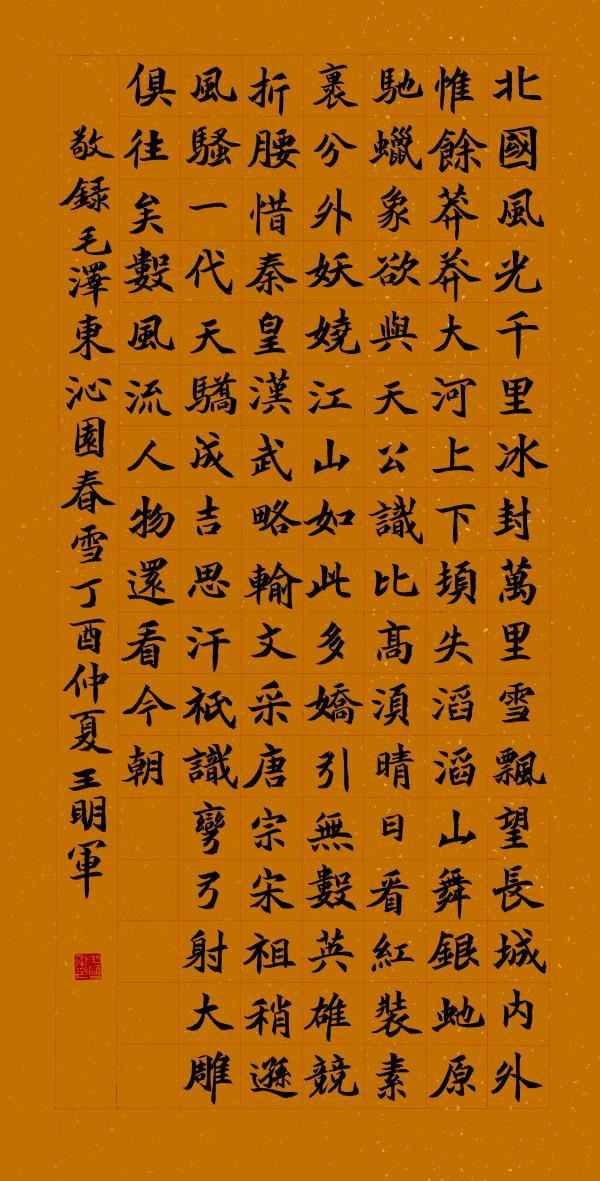 北國風光千里冰封萬里雪飄望長城内外
惟餘莽莽大河上下頓失滔滔山舞銀虵原
馳蠟象欲與天公識比高須晴日看紅裝素
裹兮外妖嬈江山如此多嬌引無數英雄競
折腰惜秦皇漢武略輸文采唐宗宋祖稍遜
風騷一代天驕成吉思汗祇識彎弓射大雕
俱往矣數風流人物還看今朝
敬録毛澤東沁園春雪丁酉仲夏王明軍